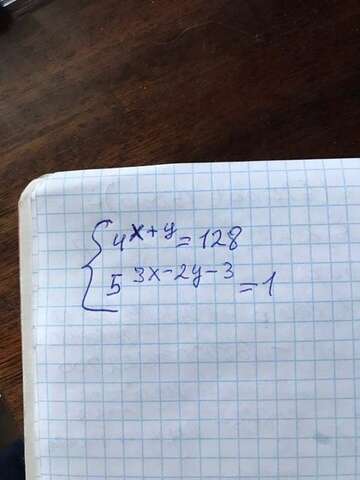 4^{x+y} = 128
5^{3x-2y-3} = 1